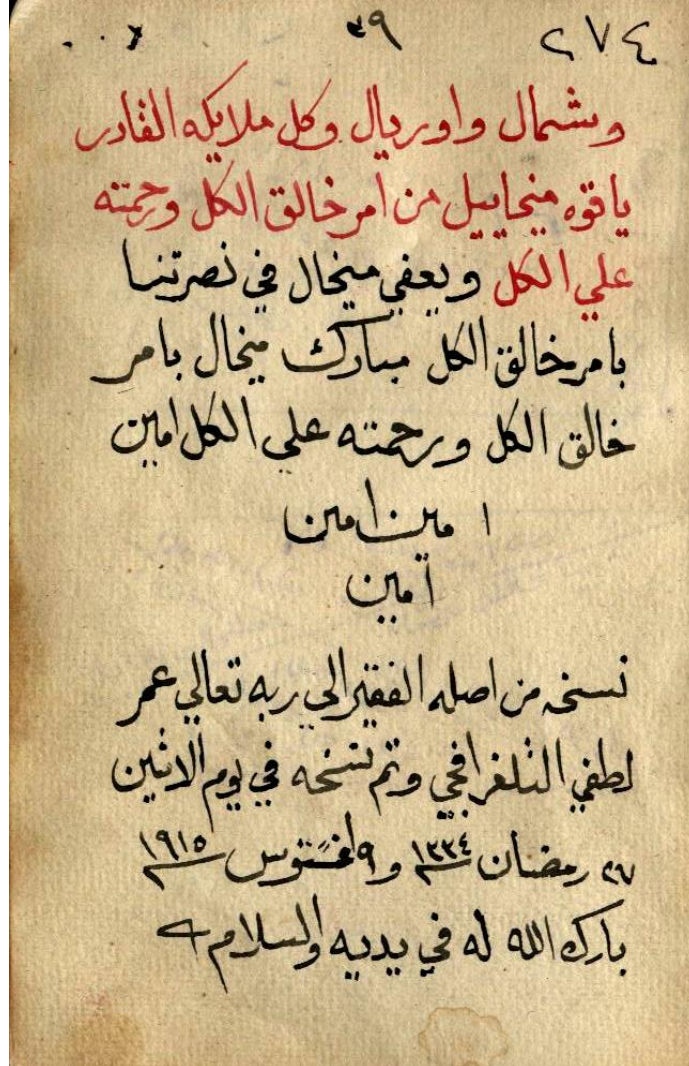 ٢٧٤ ٣٩
وشمال واوريال وكل ملايكه القادر
ياقوه ميخاييل من أمر خالق الكل ورحمته
علي الكل ويعفي ميخال في نصرتنا
بامر خالق الكل مبارك ميخال بامر
خالق الكل ورحمته علي الكل امين
امين امين
آمين
نسخه من اصله الفقير الي ربه تعالي عمر
لطفي التلغرافجي وتم نسخه في يوم الاثنين
٢٧ رمضان ١٣٣٤ و ٩ اغستوس ١٩١٥
بارك الله له في يديه والسلام